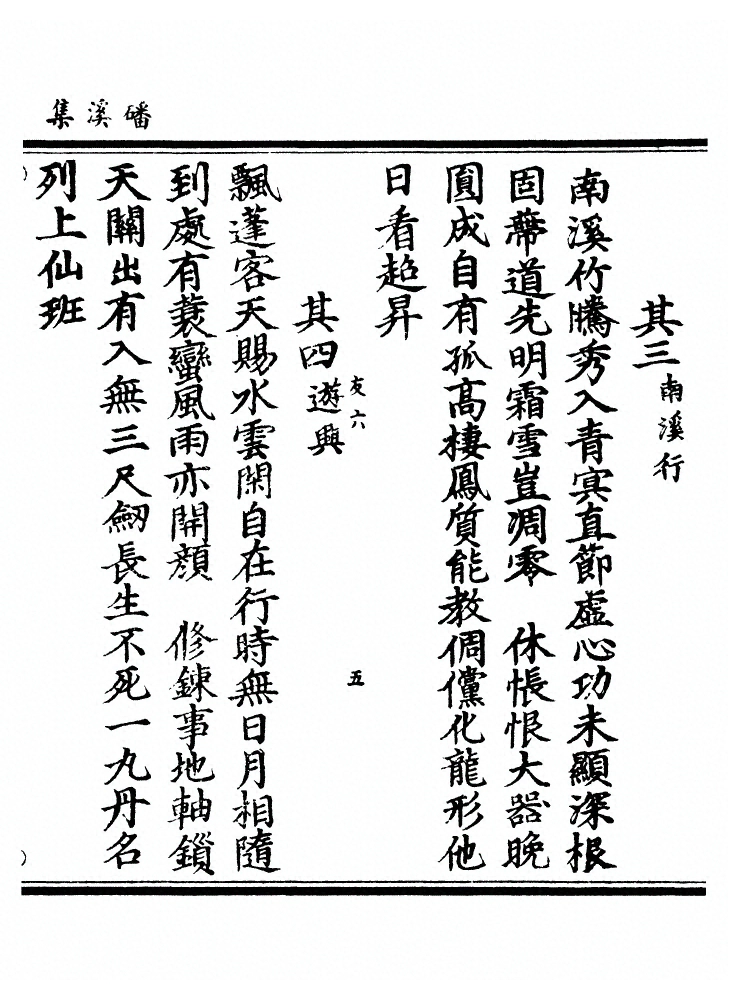 磻溪集
其三南溪行
南溪竹騰秀入青㝠直節虛心功未顯深根
固蔕道先明霜雪豈凋零　休悵恨大器晚
圎成自有孤高棲鳳質能教倜儻化龍形他
日看超昇
友六
五
其四遊興
飄蓬客天賜水雲閑自在行時無日月相隨
到處有蓑蠻風雨亦開顔　修鍊事地軸鎖
天關出有入無三尺劒長生不死一丸丹名
列上仙班